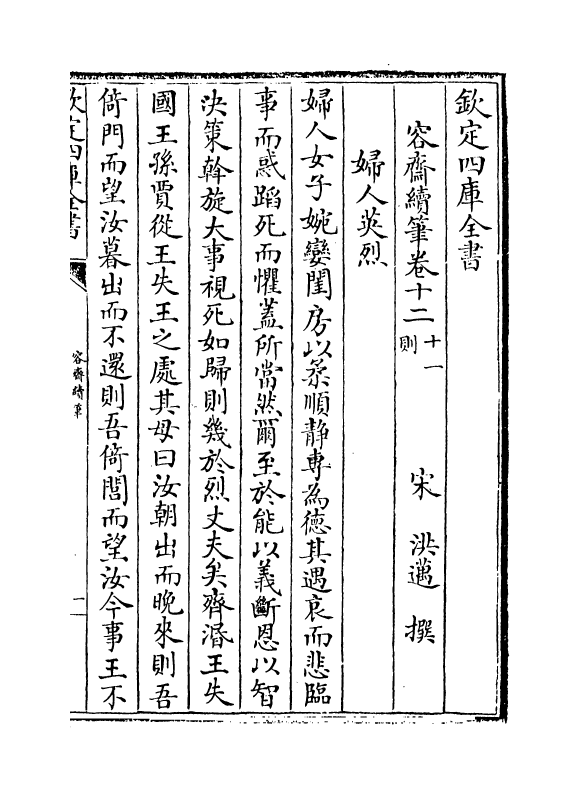 欽定四庫全書
容齋續筆卷十二 十一則
宋 洪邁 撰
婦人英烈
婦人女子婉孌閨房以柔順静專為徳其遇哀而悲臨
事而惑蹈死而懼蓋所當然爾至於能以義斷恩以智
決策斡旋大事視死如歸則幾於烈丈夫矣齊湣王失
國王孫賈從王失王之處其母曰汝朝出而晚來則吾
倚門而望汝暮出而不還則吾倚閭而望汝今事王不
欽定四庫全書
容齋續筆